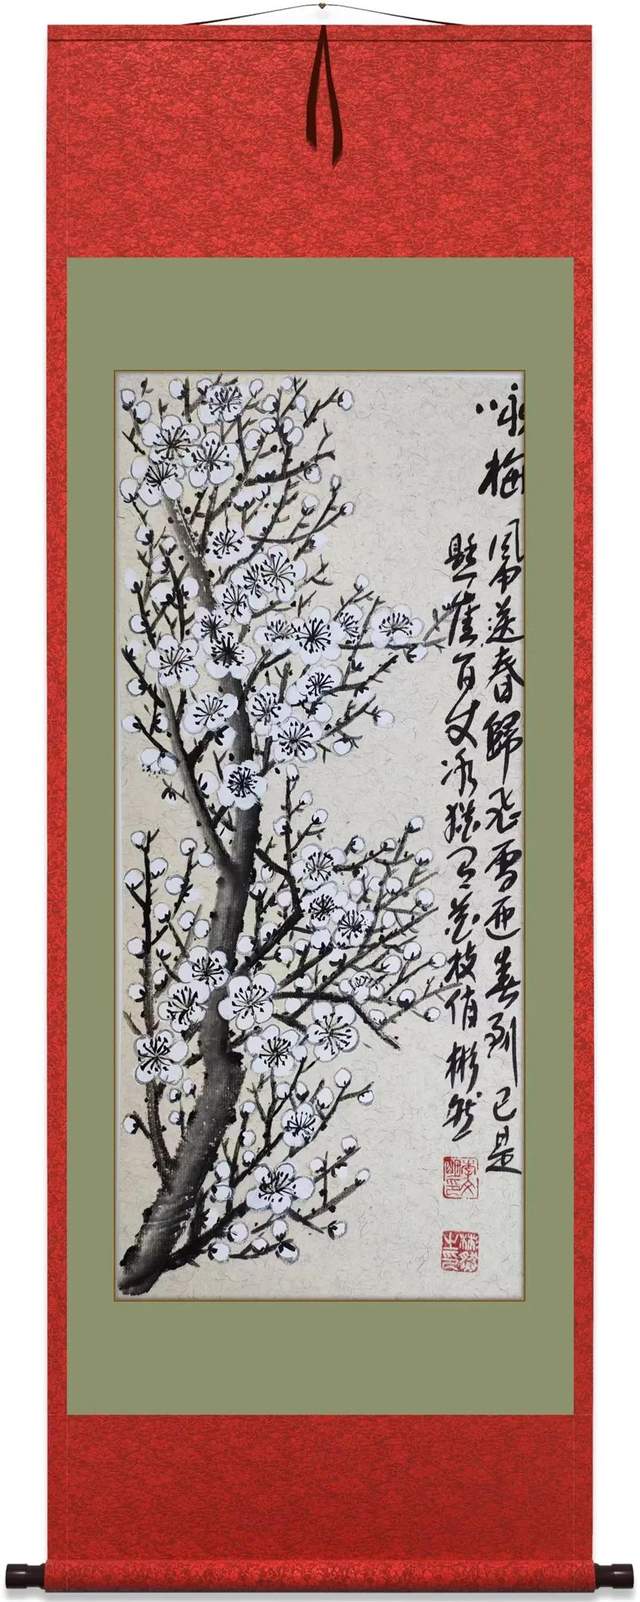 咏梅
風雨送春歸飛雪迎春到已是
懸崖百丈冰猶有花枝俏 彬然